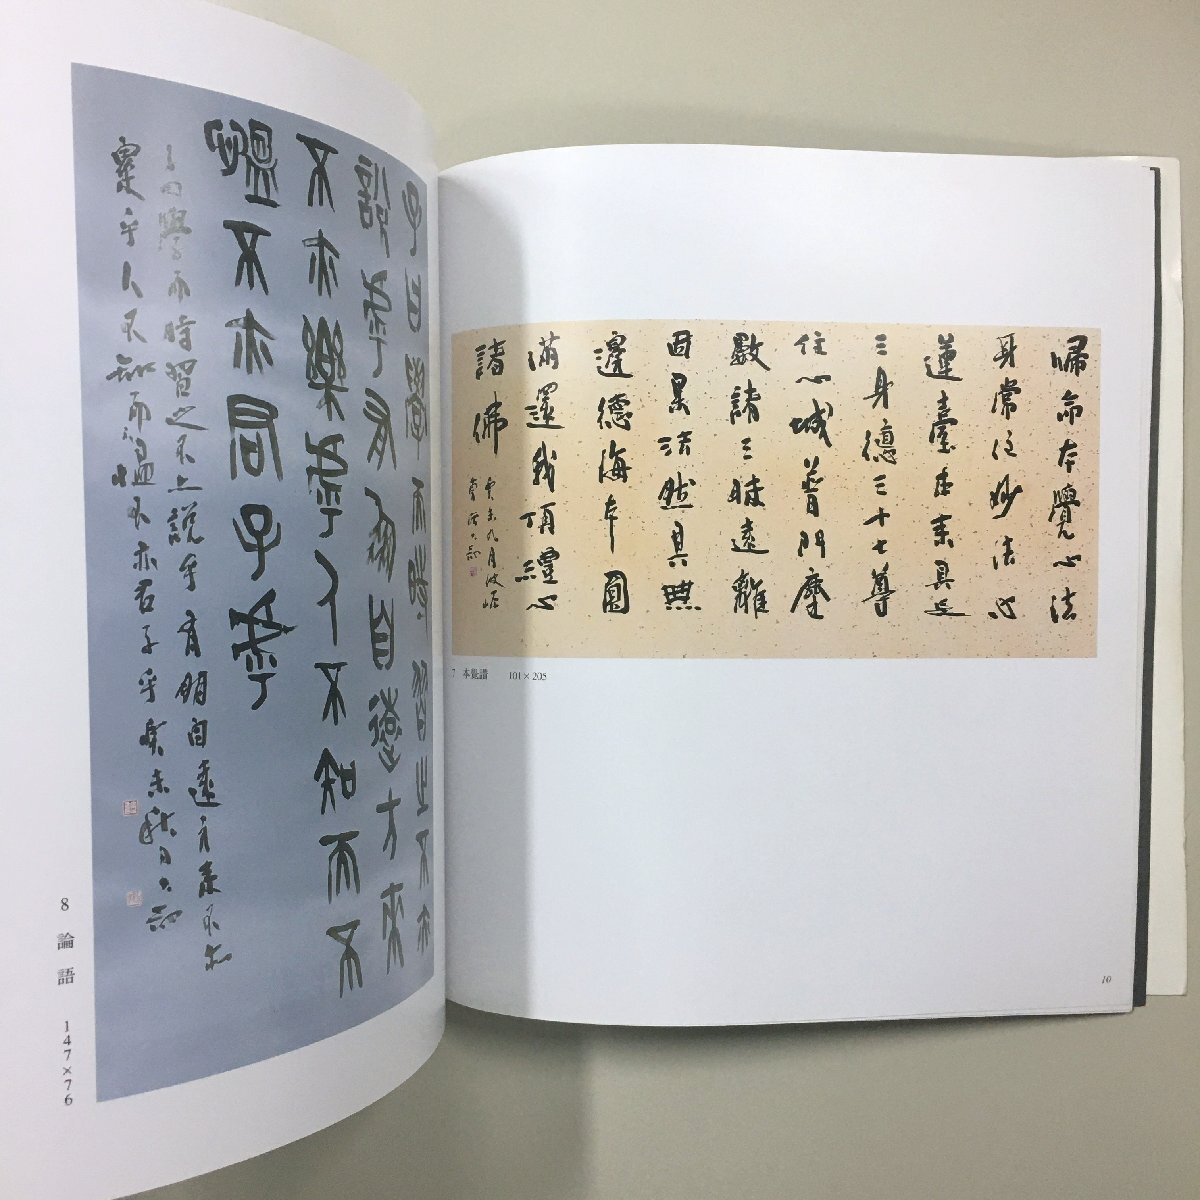 子曰學而時習之不亦
說乎有朋自遠方來
不亦樂乎人不知而不
慍不亦君子乎
子曰學而時習之不亦說乎有朋自遠方來不亦
樂乎人不知而不慍不亦君子乎癸未秋日
8 論語 147×76
歸命本覺心法
身常住妙法心
蓮臺本來具足
三身德三十七尊
住心城普門塵
數諸三昧遠離
因果法然具無
邊德海本圓
滿還我頂禮心
諸佛
癸未九月
7 本覺讃 101×205
10